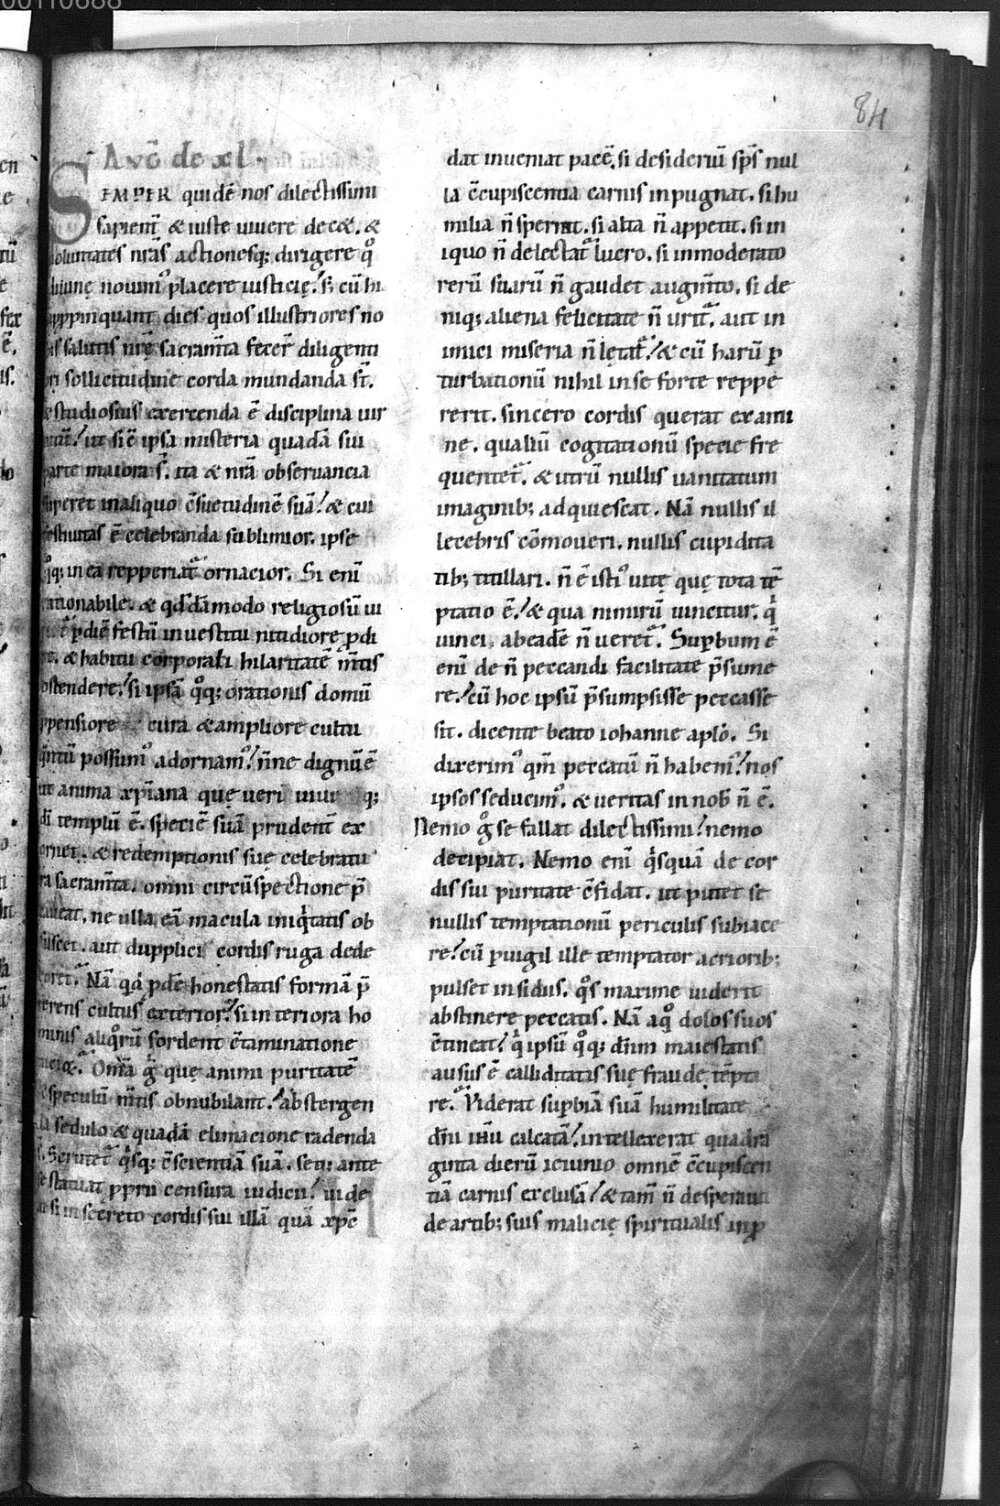 00110688
84
A vō de xl.
SEMPER quidē nos dilectissimi
sapient̄ & iuste uiuere decet. &
uoluntates nr̄as actionesq; dirigere qͦ
diuine nouimꝰ placere iusticię. s; cū hi
appinquant dies quos illustriores no
bis salutis nr̄ę sacram̄ta fecer̄ diligenti
ori sollicitudine corda mundanda st̄.
& studiosius exercenda ē disciplina uir
tutū! ut sic̄ ipsa misteria quadā sui
parte maiora st̄. ita & nr̄a obseruancia
superet inaliquo c̄suetudinē suā! & cui
festiuitas ē celebranda sublimior. ipse
qͦq; in ea repperiat̄ ornacior. Si enī
rationabile. & qd'dāmodo religiosū ui
det̄ p diē festū in uestitu nitidiore pdi
re. & habitu corporali hilaritatē m̄tis
ostendere! si ipsā qͦq; orationis domū
ppensiore cura & ampliore cultu
q̄ntū possumꝰ adornamꝰ! n̄ne dignū ē
ut anima xp̄iana que ueri uiuiq;
dī templū ē. speciē suā prudent̄ ex
ornet. & redemptionis suę celebratu
ra sacram̄ta. omni circūspectione p̄
caueat. ne ulla eā macula iniq̇tatis ob
fuscet. aut dupplici cordis ruga dede
coret̄. Nā qd' pdē honestatis formā p̄
ferens cultus exterior! si interiora ho
minis aliqͦrū sordent c̄taminatione
uiciorꝝ. Om̄a g̊ que animi puritatē
& speculū m̄tis obnubilant! abstergen
da sedulo & quadā elimacione radenda
st̄. Scrutet̄ q̇sq; c̄scientiā suā. seq; ante
se statuat pprii censura iudicii! uide
at si in secreto cordis sui illā quā xp̄c
dat inueniat pacē, si desideriū sp̄s nul
la c̄cupiscentia carnis inpugnat. si hu
milia n̄ spernit. si alta n̄ appetit. si in
iquo n̄ delectat̄ lucro. si inmoderato
rerū suarū n̄ gaudet augm̄to. si de
niq; aliena felicitate n̄ urit̄. aut in
imici miseria n̄ lętat̄! & cū harū p
turbationū nihil in se forte reppe
rerit. sincero cordis querat exami
ne. qualiū cogitationū specie fre
quentet̄. & utrū nullis uanitatum
imaginib; adquiescat. Nā nullis il
lecebris cōmoueri. nullis cupidita
tib; titillari. n̄ ē istiꝰ uitę quę tota tē
ptatio ē! & qua nimirū uincitur. q̇
uinci, ab eadē n̄ ueret̄. Supbum ē
enī de n̄ peccandi facilitate p̄sume
re! cū hoc ipsū p̄sumpsisse peccasse
sit. dicente beato iohanne aplō. Si
dixerimꝰ qm̄ peccatū n̄ habemꝰ! nos
ipsos seducimꝰ. & ueritas in nob̄ n̄ ē.
Nemo g̊ se fallat dilectissimi! nemo
decipiat. Nemo enī q̇squā de cor
dis sui puritate c̄fidat. ut putet se
nullis temptationū periculis subiace
re! cū puigil ille temptator acriorib;
pulset insidiis. qͦs maxime uiderit
abstinere peccatis. Nā a qͦ dolos suos
c̄tineat! q̇ ipsū qͦq; dn̄m maiestatis
ausus ē calliditatis suę fraude tēpta
re. Viderat supbiā suā humilitate
dn̄i ih̄u calcatā! intellexerat quadra
ginta dierū ieiunio omnē c̄cupiscen
tiā carnis exclusā! & tam̄ n̄ desperauit
de artib; suis malicię spiritualis inp